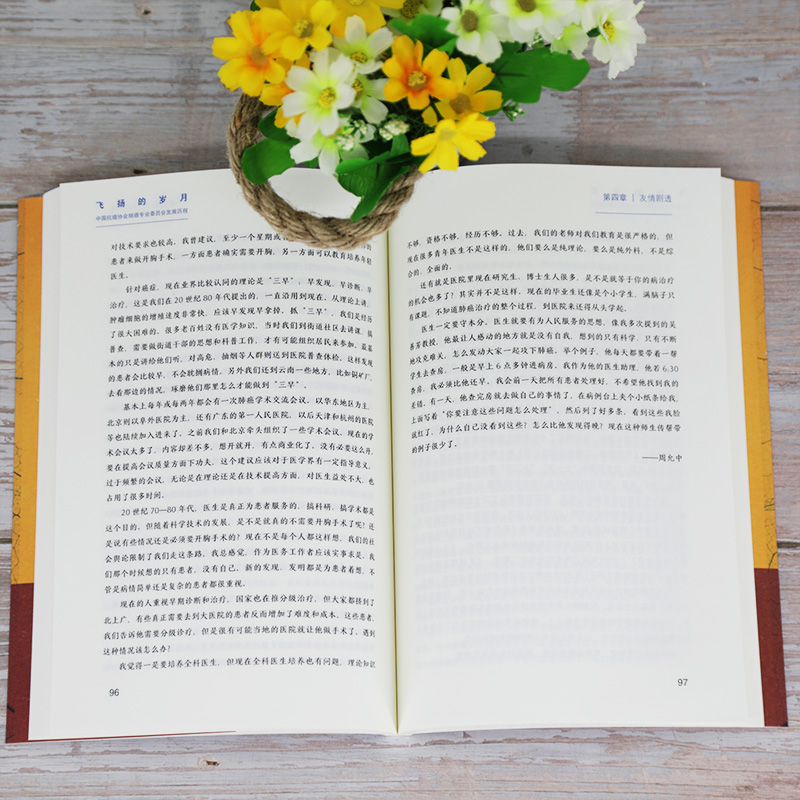 飞扬的岁月
中国抗癌协会肺癌专业委员会发展历程
对技术要求也较高。我曾建议，至少一个星期或
患者来做开胸手术。一方面患者确实需要开胸，另一方面可以教育培养年轻
医生。
针对癌症，现在业界比较认同的理论是“三早”，早发现、早诊断、早
治疗，这是我们在20世纪80年代提出的，一直沿用到现在。从理论上讲，
肿瘤细胞的增殖速度非常快，应该早发现早拿掉。抓“三早”，我们是经历
了很大困难的。很多老百姓没有医学知识，当时我们到街道社区去讲课、搞
普查，需要做街道干部的思想和科普工作，才有可能组织居民来参加。最基
本的只是讲给他们听，对高危、抽烟等人群则送到医院普查体检，这样发现
的患者会比较早，不会耽搁病情。另外我们还到云南一些地方，比如铜矿厂，
去看那边的情况，琢磨他们那里怎么才能做到“三早”。
基本上每年或每两年都会有一次肺癌学术交流会议。以华东地区为主，
北京则以阜外医院为主，还有广东的第一人民医院，以后天津和杭州的医院
等也陆续加入进来了。之前我们和北京牵头组织了一些学术会议。现在的学
术会议太多了，内容却差不多，想开就开，有点商业化了。没有必要这么开，
要在提高会议质量方面下功夫。这个建议应该对于医学界有一定指导意义，
过于频繁的会议，无论是在理论还是在技术提高方面，对医生益处不大，也
占用了很多时间。
20世纪70—80年代，医生是真正为患者服务的，搞科研、搞学术都是
这个目的。但随着科学技术的发展，是不是就真的不需要开胸手术了呢？还
是说有些情况还是必须要开胸手术的？现在不是每个人都这样想。我们的社
会舆论限制了我们走这条路。我总感觉，作为医务工作者应该实事求是。我
们那个时候想的只有患者，没有自己。新的发现、发明都是为患者着想，不
管是病情简单还是复杂的患者都很重视。
现在的人重视早期诊断和治疗，国家也在推分级治疗，但大家都挤到了
北上广，有些真正需要去到大医院的患者反而增加了难度和成本。这些患者，
我们告诉他需要分级诊疗，但是很有可能当地的医院就让他做手术了，遇到
这种情况该怎么办？
我觉得一是要培养全科医生，但现在全科医生培养也有问题，理论知识
96
第四章 | 友情剧透
不够，资格不够，经历不够。过去，我们的老师对我们教育是很严格的，但
现在很多青年医生不是这样的，他们要么是纯理论，要么是纯外科，不是综
合的、全面的。
还有就是医院里现在研究生、博士生人很多，是不是就等于你的病治疗
的机会也多了？其实并不是这样。现在的毕业生还像是个小学生，满脑子只
有课题，不知道肺癌治疗的整个过程，到医院来还得从头学起。
医生一定要守本分。医生就要有为人民服务的思想。像我多次提到的吴
善芳教授，他最让人感动的地方就是没有自我，想到的只有科学，只有不断
地攻克难关，怎么发动大家一起攻下肺癌。举个例子，他每天都要带着一帮
学生去查房，一般是早上6点多钟进病房。我作为他的医生助理，他若6:30
查房，我必须比他还早。我会前一天把所有患者处理好，不希望他找到我的
差错。有一天，他查完房就去做自己的事情了，在病例台上夹个小纸条给我，
上面写着“你要注意这些问题怎么处理”，然后列了好多条。看到这些我脸
就红了，为什么自己没看到这些？怎么比他发现得晚？现在这种师生传帮带
的例子很少了。
——周允中
97